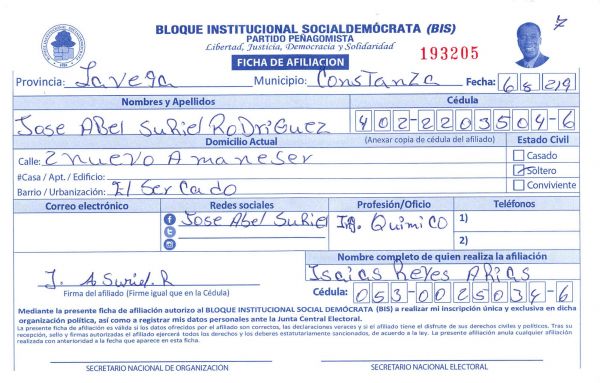 BLOQUE INSTITUCIONAL SOCIALDEMÓCRATA (BIS)
PARTIDO PEÑAGOMISTA
Libertad, Justicia, Democracia y Solidaridad
FICHA DE AFILIACION
193205
7
Provincia: La Vega Municipio: Constanza Fecha: 6 8 219
Nombres y Apellidos
Cédula
Jose Abel Suriel Rodriguez
402-2203504-6
Domicilio Actual
(Anexar copia de cédula del afiliado)
Estado Civil
Calle: 2 nuevo Amaneser
Casado
#Casa / Apt. / Edificio:
Soltero
Barrio / Urbanización: El Sercado
Conviviente
Correo electrónico
Redes sociales
Profesión/Oficio
Teléfonos
Jose Abel Surie
Ing. Quimico
1)
2)
Nombre completo de quien realiza la afiliación
Isaias Reyes Arias
J. A Suriel. R
Firma del afiliado (Firme igual que en la Cédula)
Cédula: 053-0025034-6
Mediante la presente ficha de afiliación autorizo al BLOQUE INSTITUCIONAL SOCIAL DEMÓCRATA (BIS) a realizar mi inscripción única y exclusiva en dicha
organización política, así como a registrar mis datos personales ante la Junta Central Electoral.
La presente ficha de afiliación es válida si los datos ofrecidos por el afiliado son correctos, las declaraciones veraces y si el afiliado tiene el disfrute de sus derechos civiles y políticos. Tras su
recepción, sello y firmas autorizadas el afiliado ejercerá todos los derechos y los deberes estatutariamente sancionados, de acuerdo a la ley. La presente afiliación anula cualquier afiliación
realizada con anterioridad a la fecha que aparece en esta ficha.
SECRETARIO NACIONAL DE ORGANIZACIÓN
SECRETARIO NACIONAL ELECTORAL